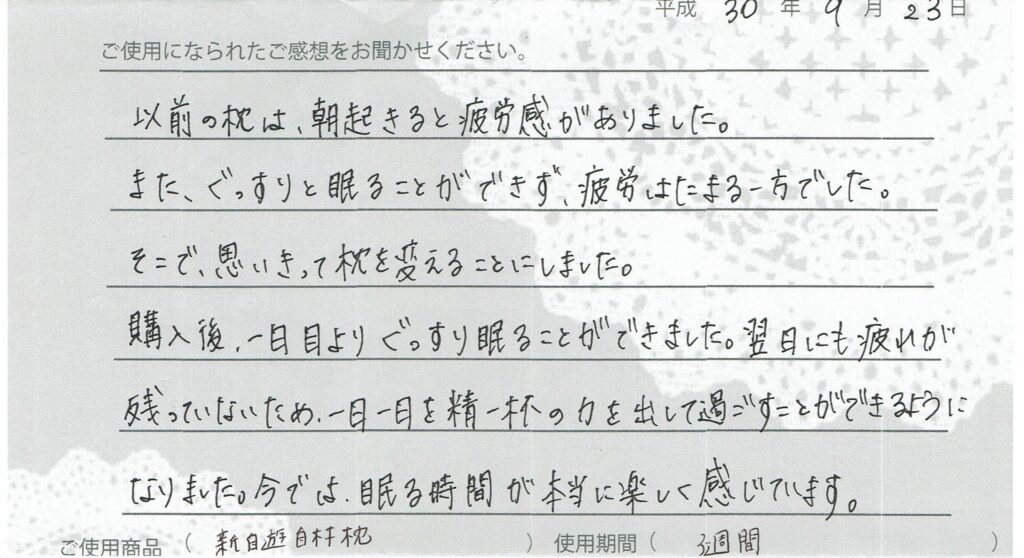 平成 30 年 9 月 23 日
ご使用になられたご感想をお聞かせください。
以前の枕は、朝起きると疲労感がありました。
また、ぐっすりと眠ることができず、疲労はたまる一方でした。
そこで、思いきって枕を変えることにしました。
購入後、一日目よりぐっすり眠ることができました。翌日にも疲れが
残っていないため、一日一日を精一杯の力を出して過ごすことができるように
なりました。今では、眠る時間が本当に楽しく感じています。
ご使用商品 ( 新自遊自材枕 ) 使用期間 ( 3週間 )